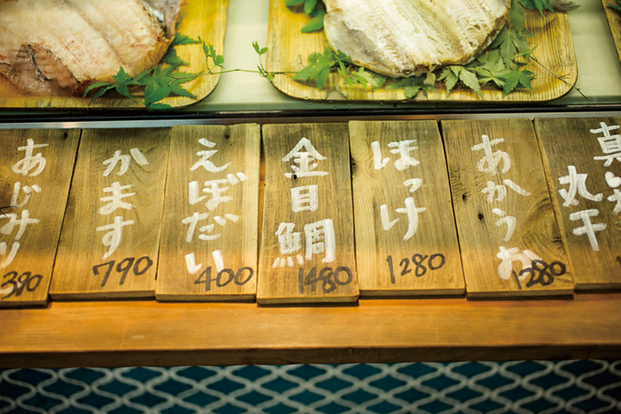 あじみり
390
かます
790
えぼだい
400
金目鯛
1480
ほっけ
1280
あかうお
1280
真
丸干